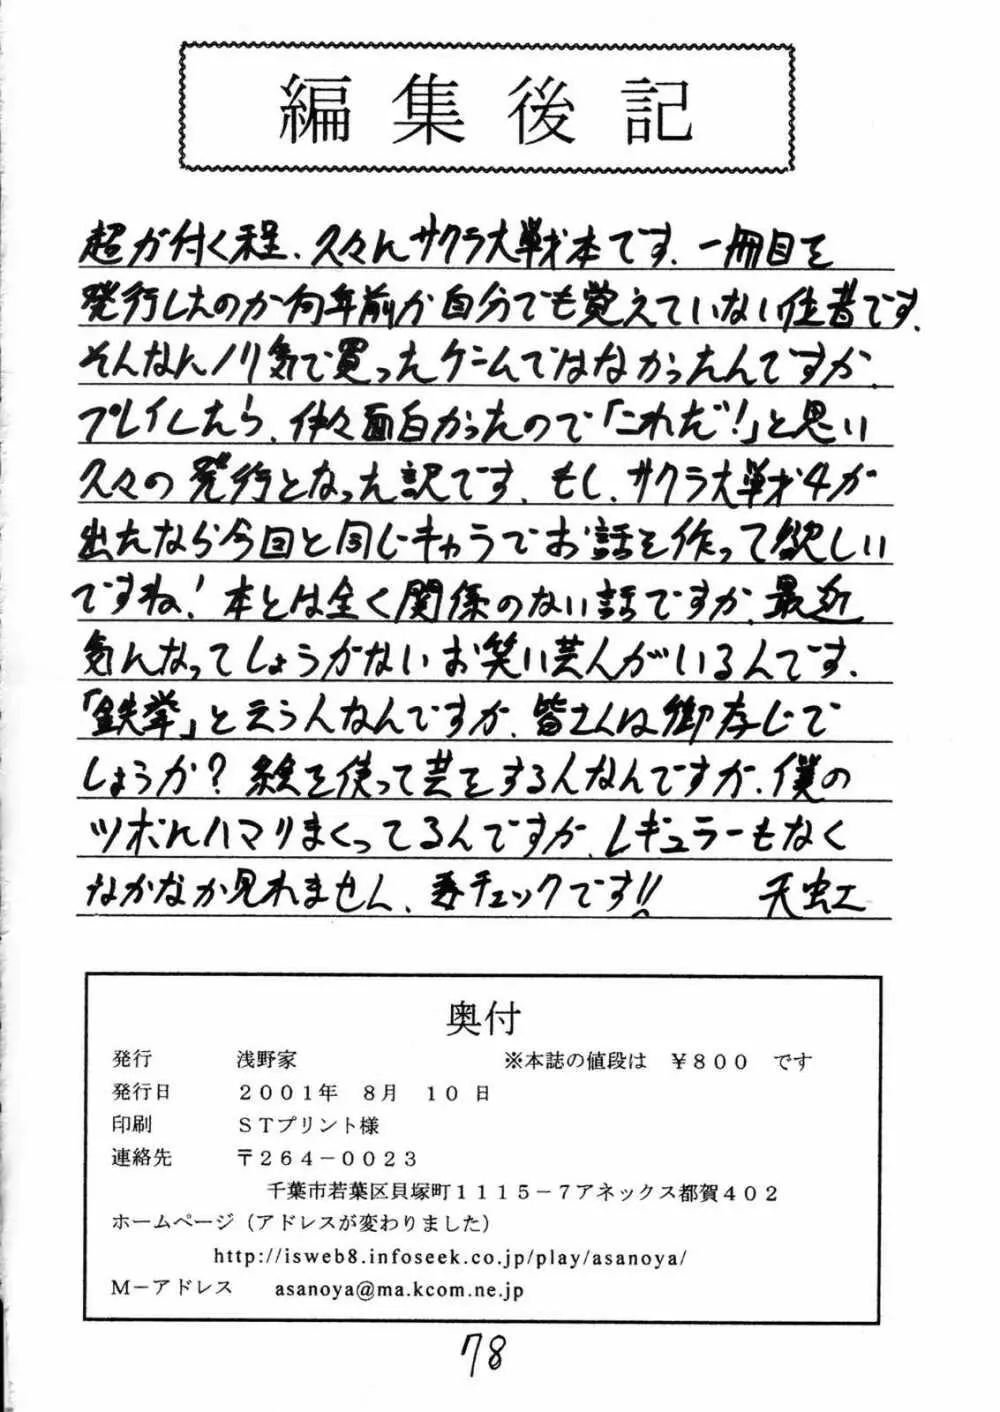 編集後記
超が付く程、久々にサクラ大戦本です。一冊目を
発行したのが何年前か自分でも覚えていない位昔です。
そんなにノリ気で買ったゲームではなかったんですが、
プレイしたら、仲々面白かったので「これだ!」と思い
久々の発行となった訳です。もし、サクラ大戦4が
出たなら今回と同じキャラでお話を作って欲しい
ですね! 本とは全く関係のない話ですが、最近
気になってしょうがないお笑い芸人がいるんです。
「鉄拳」と云う人なんですが、皆さんは御存じで
しょうか? 絵を使って芸をする人なんですが、僕の
ツボにハマりまくってるんですが、レギュラーもなく
なかなか見れません、要チェックです!! 天虫工
奥付
発行 浅野家 ※本誌の値段は ¥800 です
発行日 2001年 8月 10日
印刷 STプリント様
連絡先 〒264-0023
千葉市若葉区貝塚町1115-7アネックス都賀402
ホームページ(アドレスが変わりました)
http://isweb8.infoseek.co.jp/play/asanoya/
M-アドレス asanoya@ma.kcom.ne.jp
78